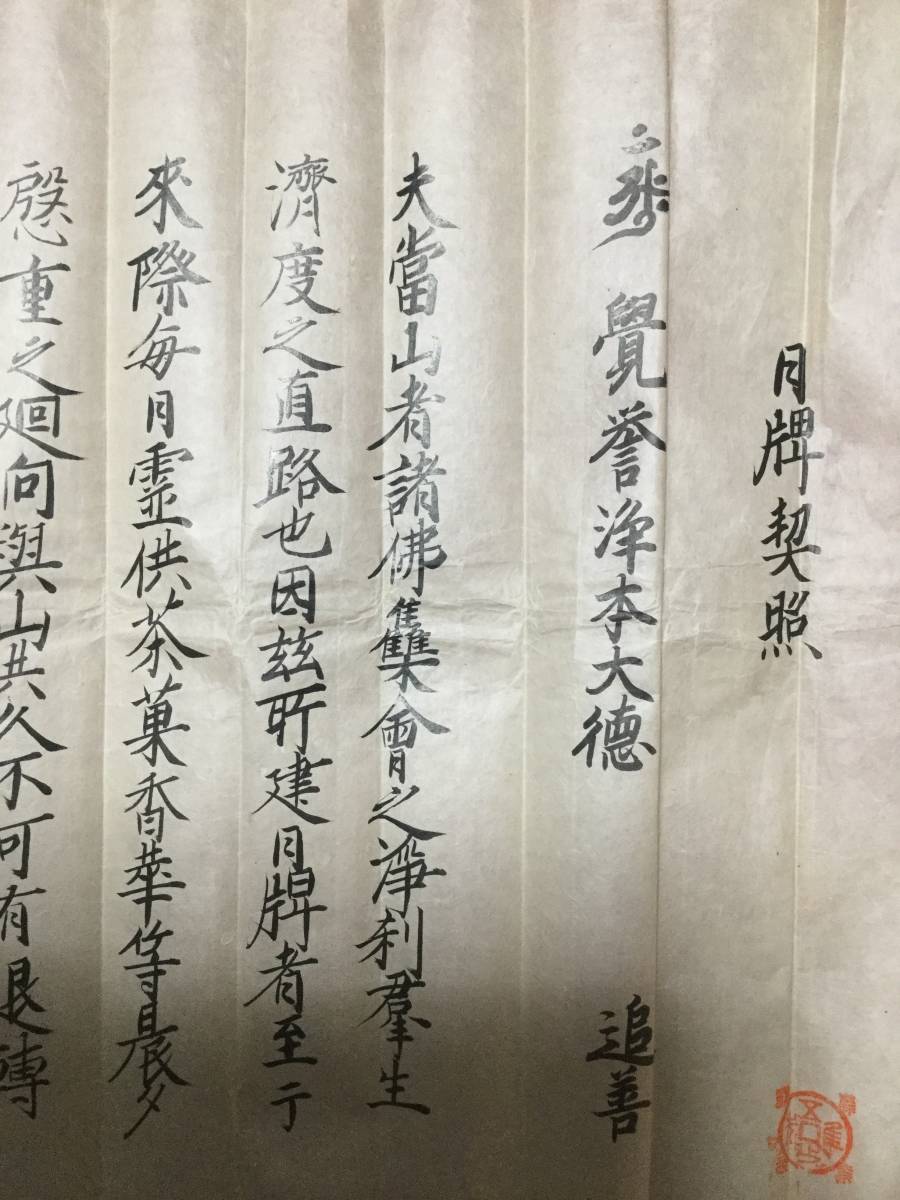 月牌契照
覺誉浄本大德 追善
夫當山者諸佛雧會之淨刹羣生
濟度之直路也因茲所建月牌者至于
來際每月霊供茶菓香華等晨夕
慇重之廻向與山共久不可有退轉